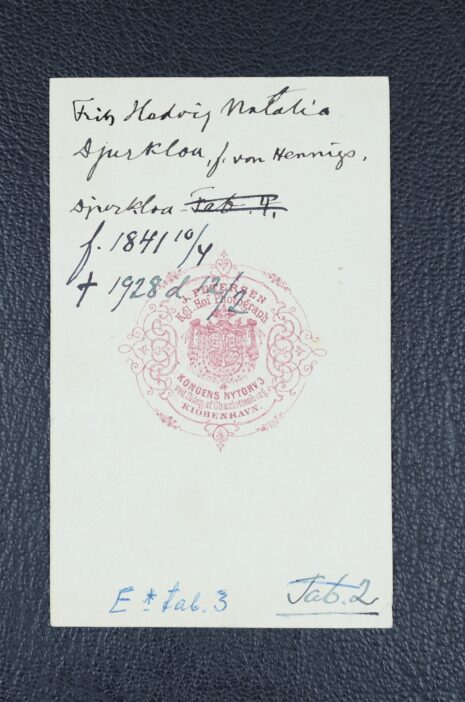 Frih Hedvig Natalia
Djurkloa, f. von Hennigs.
Djurkloa Tab. 4.
f. 1841 10/4
† 1928 d 12/2
J. PETERSEN
Kgl Hof Photograph
KONGENS NYTORV 3
ved Siden af Charlottenborg.
KIÖBENHAVN.
E * tab. 3
Tab. 2